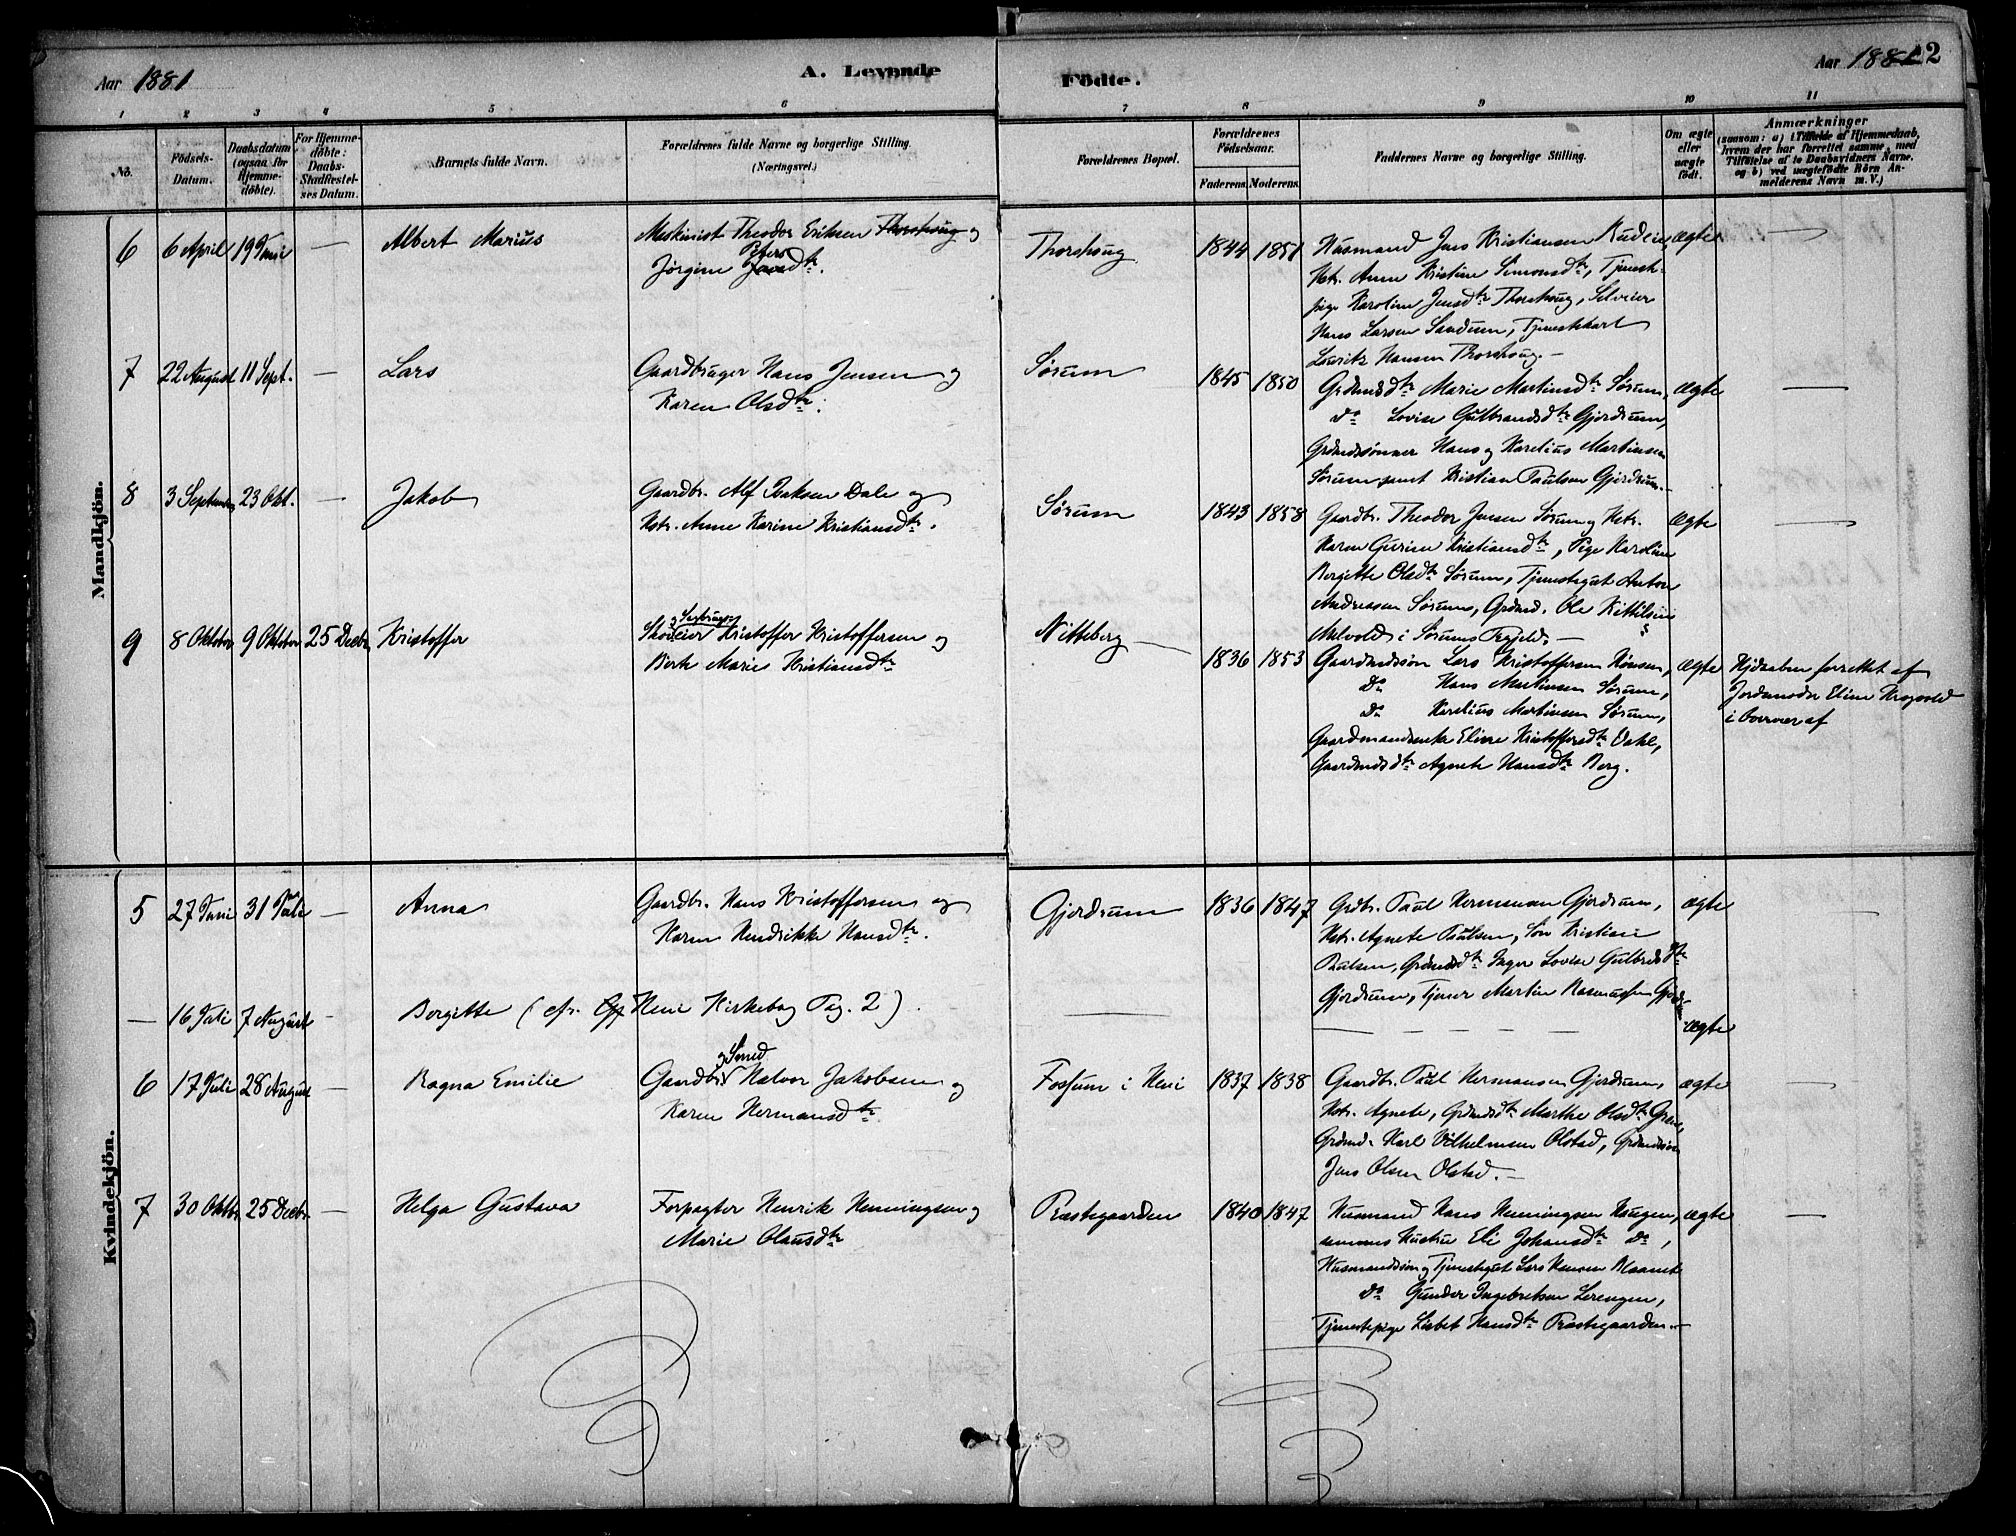 Aar 1881
A. Levende
Födte.
Aar 1881
2
1 2 3 4 5 6 7 8 9 10 11
No.
Födsels-Datum.
Daabsdatum (ogsaa for Hjemme-döbte).
For Hjemme-döbte: Daabs-Stadfæstel-ses Datum.
Barnets fulde Navn.
Forældrenes fulde Navne og borgerlige Stilling.
(Næringsvei.)
Forældrenes Bopæl.
Forældrenes Födselsaar.
Faderens. Moderens.
Faddernes Navne og borgerlige Stilling.
Om ægte eller uægte födt.
Anmærkninger
(saasom: a) i Tilfælde af Hjemmedaab, hvem der har forrettet samme, med Tilföielse af to Daabsvidners Navne, og b) ved uægtefödte Börn An-melderens Navn m. V.)
Mandkjön.
6 6 April 19 Juni — Albert Marius
Maskinist Theodor Eriksen Thorshaug og
Jørgine Peders Jensdtr.
Thorshaug 1844 1851
Husmand Jens Kristiansen Rudeie,
Hstr. Anne Kristine Simonsdtr, Tjeneste-
pige Karoline Jensdtr Thorshaug, Selveier
Hans Larsen Sandum, Tjenestekarl
Lauritz Hansen Thorshaug. —
ægte —
7 22 August 11 Sept. — Lars
Gaardbruger Hans Jensen og
Karen Olsdtr.
Sørum 1845 1850
Grdmdsdtr Marie Martinsdtr Sørum,
do Lovise Gulbrandsdtr Gjordrum,
Grdmdssønner Hans og Karelius Martinsen
Sørum samt Kristian Paulsen Gjordrum. —
ægte —
8 3 September 23 Okt. — Jakob
Gaardbr. Alf Isaksen Dale og
Hstr. Anne Karine Kristiansdtr.
Sørum 1843 1858
Gaardbr. Theodor Jensen Sørum og Hstr.
Karen Gurine Kristiansdtr, Pige Karoline
Bergitte Olsdtr Sørum, Tjenestegut Anton
Andreasen Sørum, Grdmd. Ole Kittilsen
Melvold i Sørums Prgjeld. —
ægte —
9 8 Oktober 9 Oktober 25 Decbr. Kristoffer
Skoeier og Kristoffer Kristoffersen og
Berte Marie Kristiansdtr
Nitteberg — 1836 1853
Gaardmdssøn Lars Kristoffersen Kønsen,
Do Hans Martinsen Sørum,
Do Karelius Martinsen Sørum,
Gaardmandsenke Eline Kristoffersdtr Dahl,
Gaardmdsdtr Agnete Hansdtr Berg.
ægte
Hjdaaben forrettet af
Jordemoder Eline Krogvold
i Overvær af
Kvindekjön.
5 27 Juni 31 Juli — Anna
Gaardbr. Hans Kristoffersen og
Karen Hendrikke Hansdtr.
Gjordrum 1836 1847
Grdbr. Paul Hermansen Gjordrum,
Hstr. Agnete Paulsen, Søn Kristian
Paulsen, Grdmdsdtr Inger Lovise Gulbrdsdtr
Gjordrum, Tjener Martin Rasmussen Gjordr.
ægte —
— 16 Juli 7 August — Bergitte (cfr. Heni Kirkebog Pag. 2).
ægte
6 17 Juli 28 August — Ragna Emilie
Gaardbr. og Smed Halvor Jakobsen og
Karen Hermansdtr.
Fossum i Heni 1837 1838
Gaardbr. Paul Hermansen Gjordrum,
Hstr. Agnete, Grdmdsdtr Marthe Olsdtr
Grdmd. Karl Vilhelmsen Olstad, Grdmdssøn
Jens Olsen Olstad. —
ægte —
7 30 Oktbr. 25 Decbr. — Helga Gustava
Forpagter Henrik Henningsen og
Marie Olausdtr
Præstegaarden 1840 1847
Husmand Hans Henningsen Haugen,
sammes Hustru Eli Johansdtr Do,
Husmandssøn og Tjenestegut Lars Hansen
Do Gunder Ingebretsen Lerengen,
Tjenestepige Lisbet Hansdtr Præstegaarden. —
ægte —